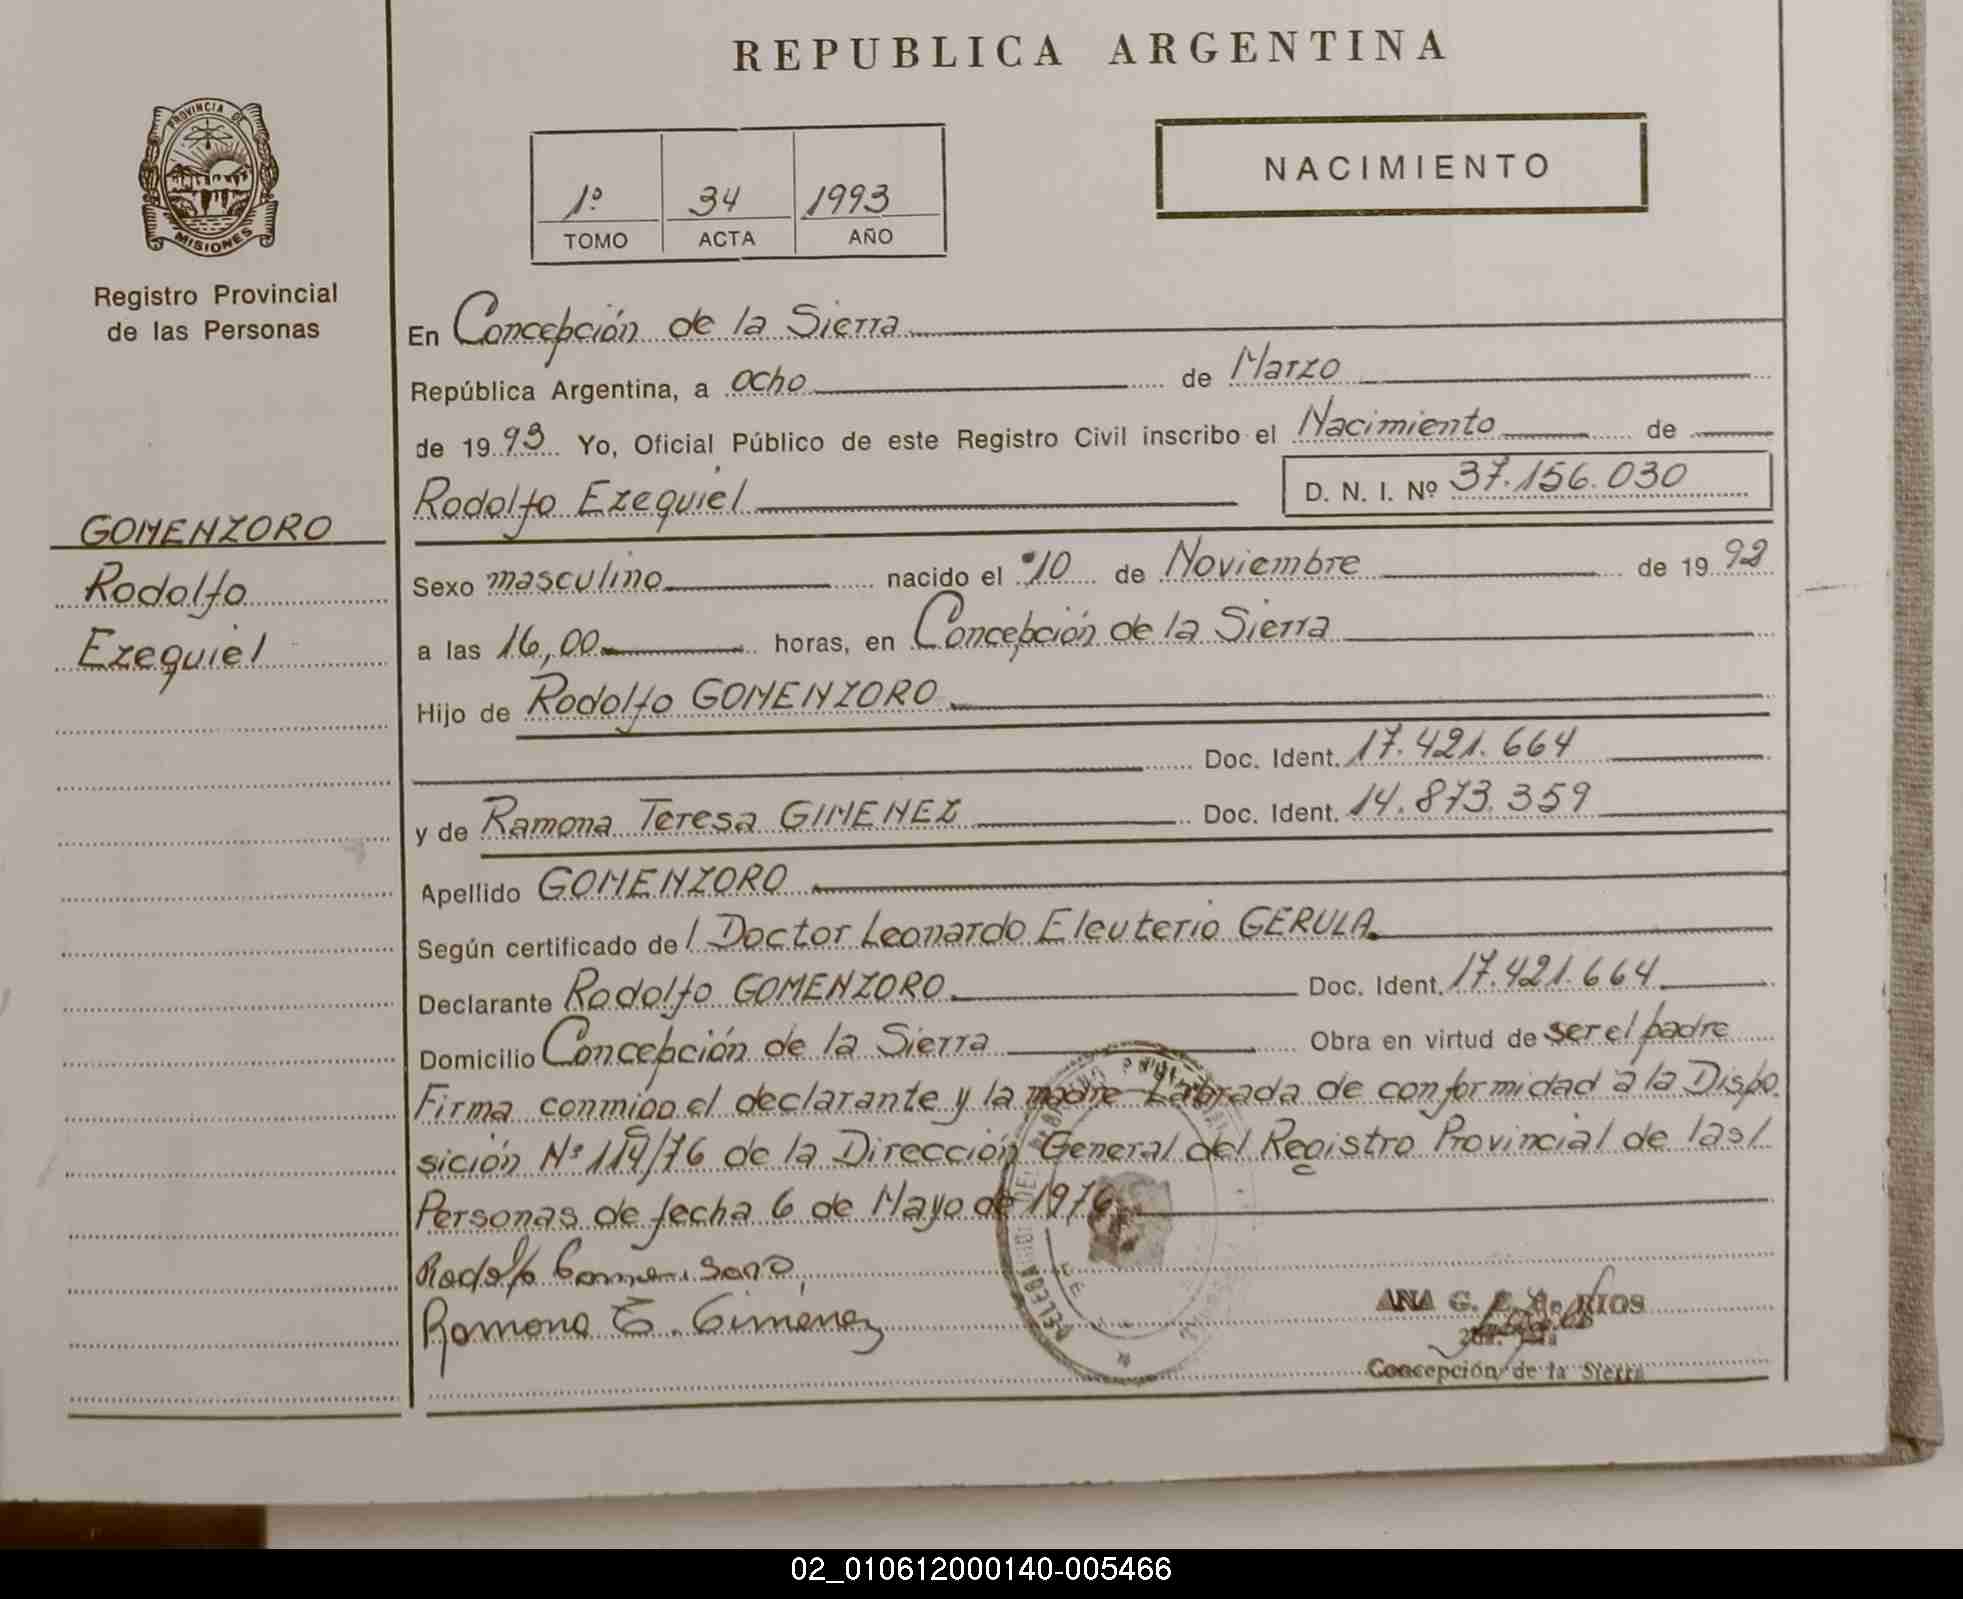 REPUBLICA ARGENTINA
PROVINCIA DE
MISIONES
Registro Provincial
de las Personas
1º 34 1993
TOMO ACTA AÑO
NACIMIENTO
GOMENZORO
Rodolfo
Ezequiel
En Concepción de la Sierra
República Argentina, a ocho de Marzo
de 1993 Yo, Oficial Público de este Registro Civil inscribo el Nacimiento de
Rodolfo Ezequiel D. N. I. Nº 37.156.030
Sexo masculino nacido el 10 de Noviembre de 1992
a las 16,00 horas, en Concepción de la Sierra
Hijo de Rodolfo GOMENZORO
Doc. Ident. 17.421.664
y de Ramona Teresa GIMENEZ Doc. Ident. 14.873.359
Apellido GOMENZORO
Según certificado del Doctor Leonardo Eleuterio GERULA
Declarante Rodolfo GOMENZORO Doc. Ident. 17.421.664
Domicilio Concepción de la Sierra Obra en virtud de ser el padre
Firma conmigo el declarante y la madre Labrada de conformidad a la Dispo
sición Nº 119/76 de la Dirección General del Registro Provincial de las
Personas de fecha 6 de Mayo de 1976
Rodolfo
Ramona T. Gimenez
ANA G. RIOS
Concepción de la Sierra
02_010612000140-005466